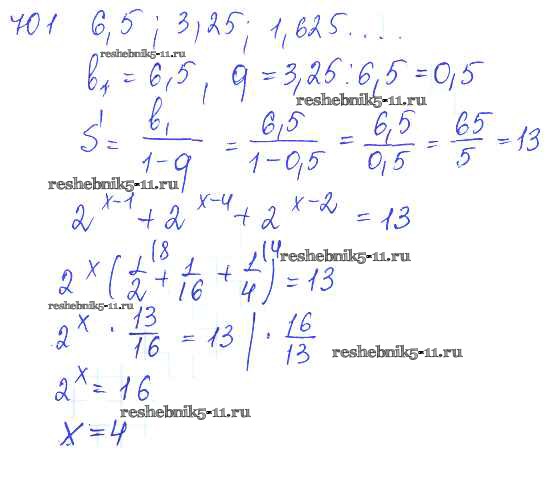 701 6,5 ; 3,25 ; 1,625 ....
reshebnik5-11.ru
b₁ = 6,5 , q = 3,25 : 6,5 = 0,5
reshebnik5-11.ru
S = b₁/(1-q) = 6,5/(1-0,5) = 6,5/0,5 = 65/5 = 13
reshebnik5-11.ru
2^(x-1) + 2^(x-4) + 2^(x-2) = 13
2^x (1/2 (8 + 1/16 + 1/4 (4) = 13
reshebnik5-11.ru
reshebnik5-11.ru
2^x · 13/16 = 13 | · 16/13
reshebnik5-11.ru
2^x = 16
reshebnik5-11.ru
x = 4